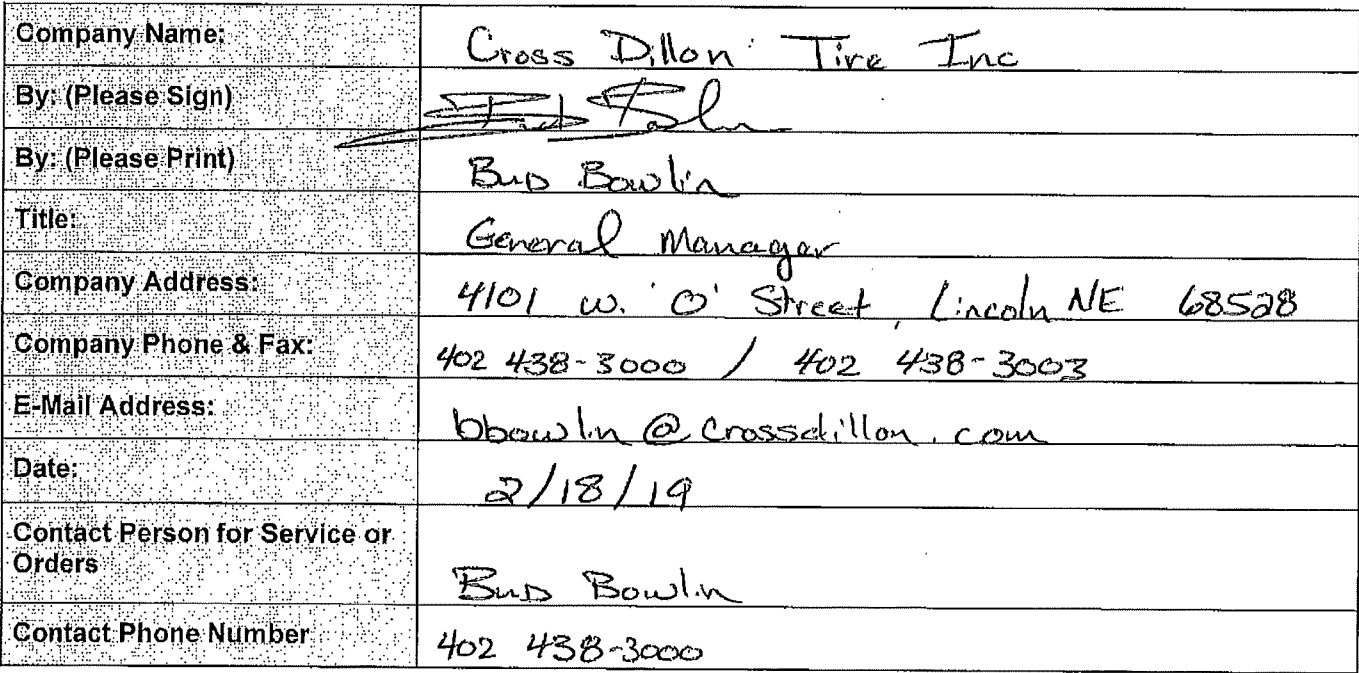 Company Name: Cross Dillon Tire Inc
By: (Please Sign)
By: (Please Print) Bud Bowlin
Title: General Manager
Company Address: 4101 W. 'O' Street, Lincoln NE 68528
Company Phone & Fax: 402 438-3000 / 402 438-3003
E-Mail Address: bbowlin@crossdillon.com
Date: 2/18/19
Contact Person for Service or
Orders Bud Bowlin
Contact Phone Number 402 438-3000